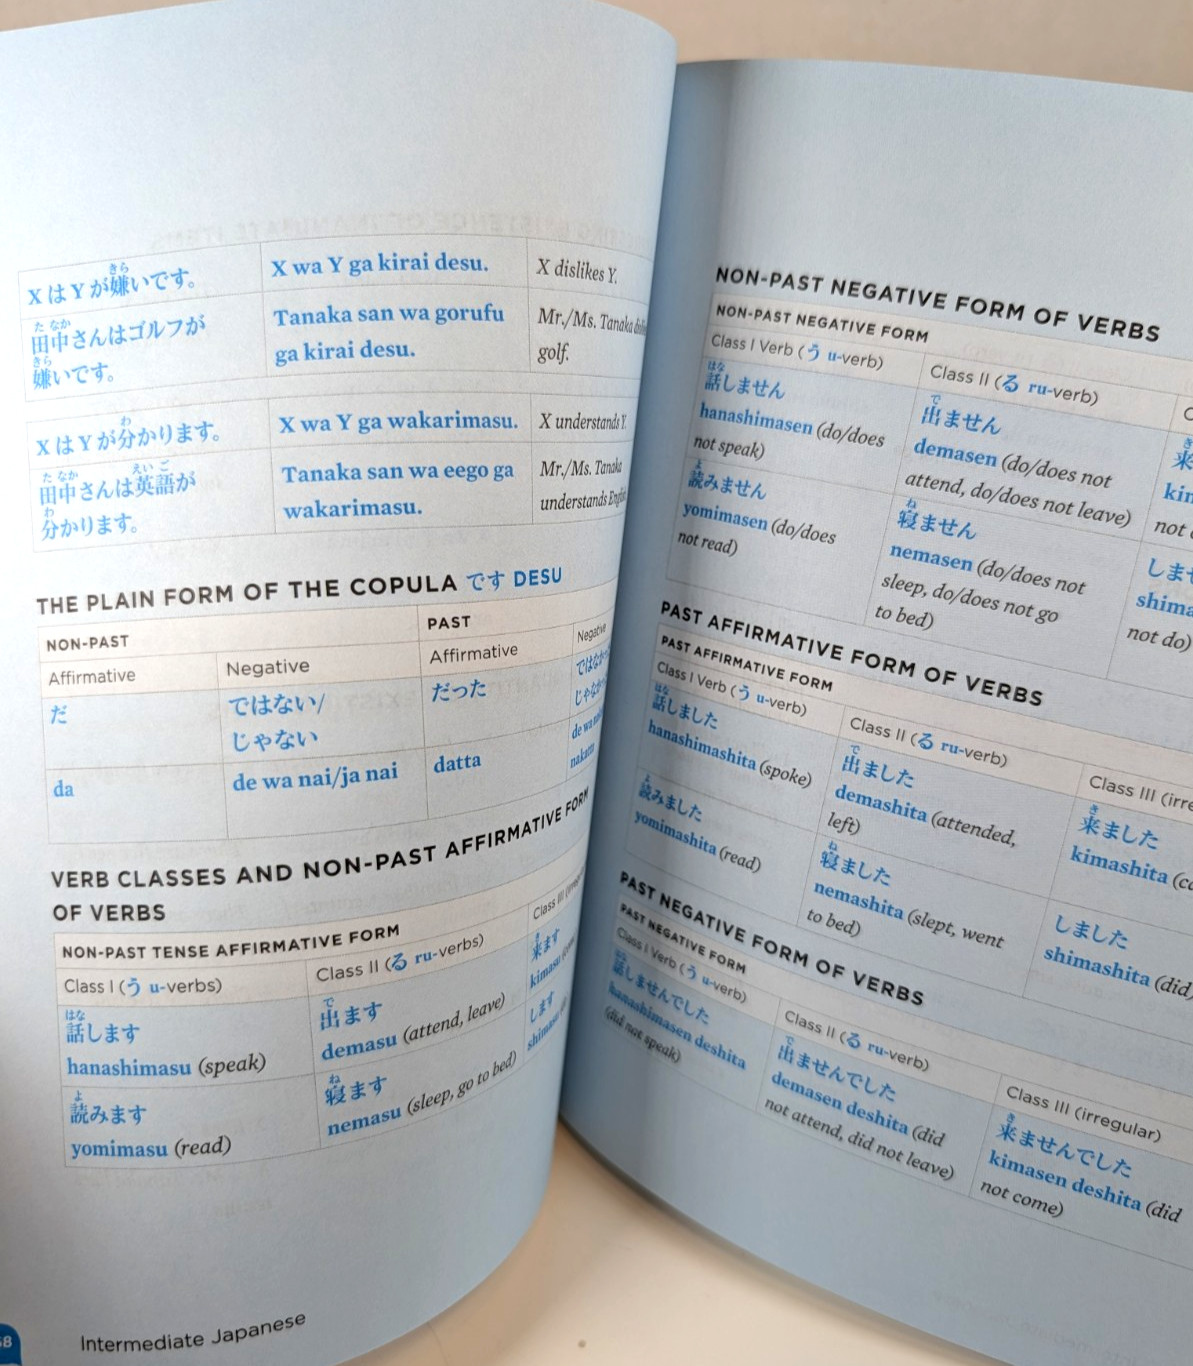 X は Y が嫌いです。
X wa Y ga kirai desu.
X dislikes Y.
田中さんはゴルフが
嫌いです。
Tanaka san wa gorufu
ga kirai desu.
Mr./Ms. Tanaka
golf.
X は Y が分かります。
X wa Y ga wakarimasu.
X understands Y.
田中さんは英語が
分かります。
Tanaka san wa eego ga
wakarimasu.
Mr./Ms. Tanaka
understands English.
THE PLAIN FORM OF THE COPULA です DESU
NON-PAST
PAST
Affirmative
Negative
Affirmative
Negative
だ
ではない/
じゃない
だった
da
de wa nai/ja nai
datta
de wa
VERB CLASSES AND NON-PAST AFFIRMATIVE FORM
OF VERBS
NON-PAST TENSE AFFIRMATIVE FORM
Class I (う u-verbs)
Class II (る ru-verbs)
Class III
話します
hanashimasu (speak)
出ます
demasu (attend, leave)
来ます
kimasu
読みます
yomimasu (read)
寝ます
nemasu (sleep, go to bed)
します
Intermediate Japanese
NON-PAST NEGATIVE FORM OF VERBS
NON-PAST NEGATIVE FORM
Class I Verb (う u-verb)
Class II (る ru-verb)
話しません
hanashimasen (do/does
not speak)
出ません
demasen (do/does not
attend, do/does not leave)
来
not
読みません
yomimasen (do/does
not read)
寝ません
nemasen (do/does not
sleep, do/does not go
to bed)
not do)
PAST AFFIRMATIVE FORM OF VERBS
PAST AFFIRMATIVE FORM
Class I Verb (う u-verb)
Class II (る ru-verb)
Class III
話しました
hanashimashita (spoke)
出ました
demashita (attended,
left)
来ました
kimashita
読みました
yomimashita (read)
寝ました
nemashita (slept, went
to bed)
しました
shimashita (did)
PAST NEGATIVE FORM OF VERBS
PAST NEGATIVE FORM
Class I Verb (う u-verb)
Class II (る ru-verb)
Class III (irregular)
話しませんでした
hanashimasen deshita
(did not speak)
出ませんでした
demasen deshita (did
not attend, did not leave)
来ませんでした
kimasen deshita (did
not come)